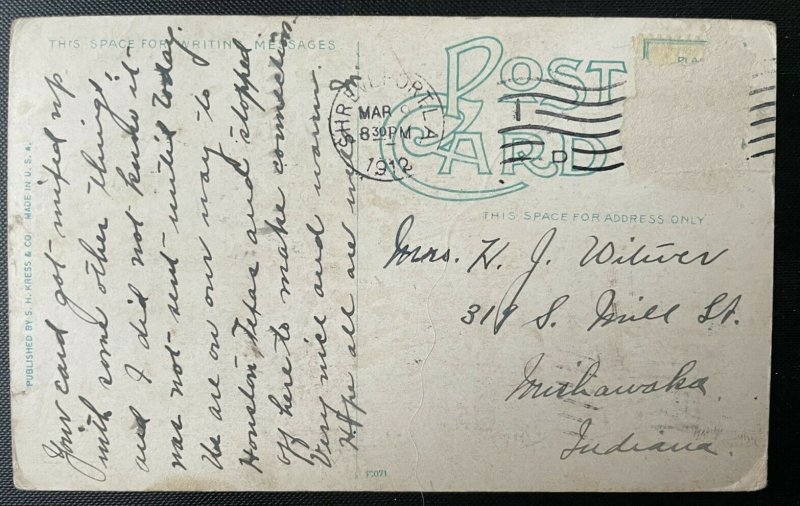 THIS SPACE FOR WRITING MESSAGES
Your card got mixed up
with some other things,
and I did not know it
was not sent until today.
We are on our way to
Houston Texas and stopped
off here to make connection.
Very nice and warm.
Hope all are well.
PUBLISHED BY S. H. KRESS & CO. MADE IN U. S. A.
POST
CARD
SHREVEPORT, LA
MAR
8 30 PM
1912
THIS SPACE FOR ADDRESS ONLY
Mrs. H. J. Witwer
319 S. Mill St.
Mishawaka
Indiana.